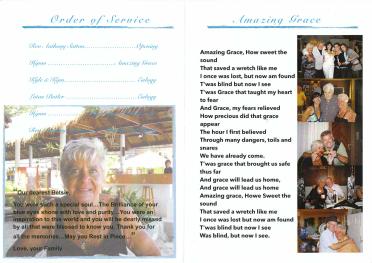 Order of Service
Rev Anthony Sutton Opening
Hymn Amazing Grace
Kyle & Kym Eulogy
Eulogy
Hymn
"Our dearest Betsie,
You were such a special soul...The Brilliance of your
blue eyes shone with love and purity...You were an
inspiration to this world and you will be dearly missed
by all that were blessed to know you. Thank you for
all the memories...May you Rest in Peace..."
Love, your Family
Amazing Grace
Amazing Grace, How sweet the
sound
That saved a wretch like me
I once was lost, but now am found
T'was blind but now I see
T'was Grace that taught my heart
to fear
And Grace, my fears relieved
How precious did that grace
appear
The hour I first believed
Through many dangers, toils and
snares
We have already come.
T'was grace that brought us safe
thus far
And grace will lead us home,
And grace will lead us home
Amazing grace, Howe Sweet the
sound
That saved a wretch like me
I once was lost but now am found
T'was blind but now I see
Was blind, but now I see.